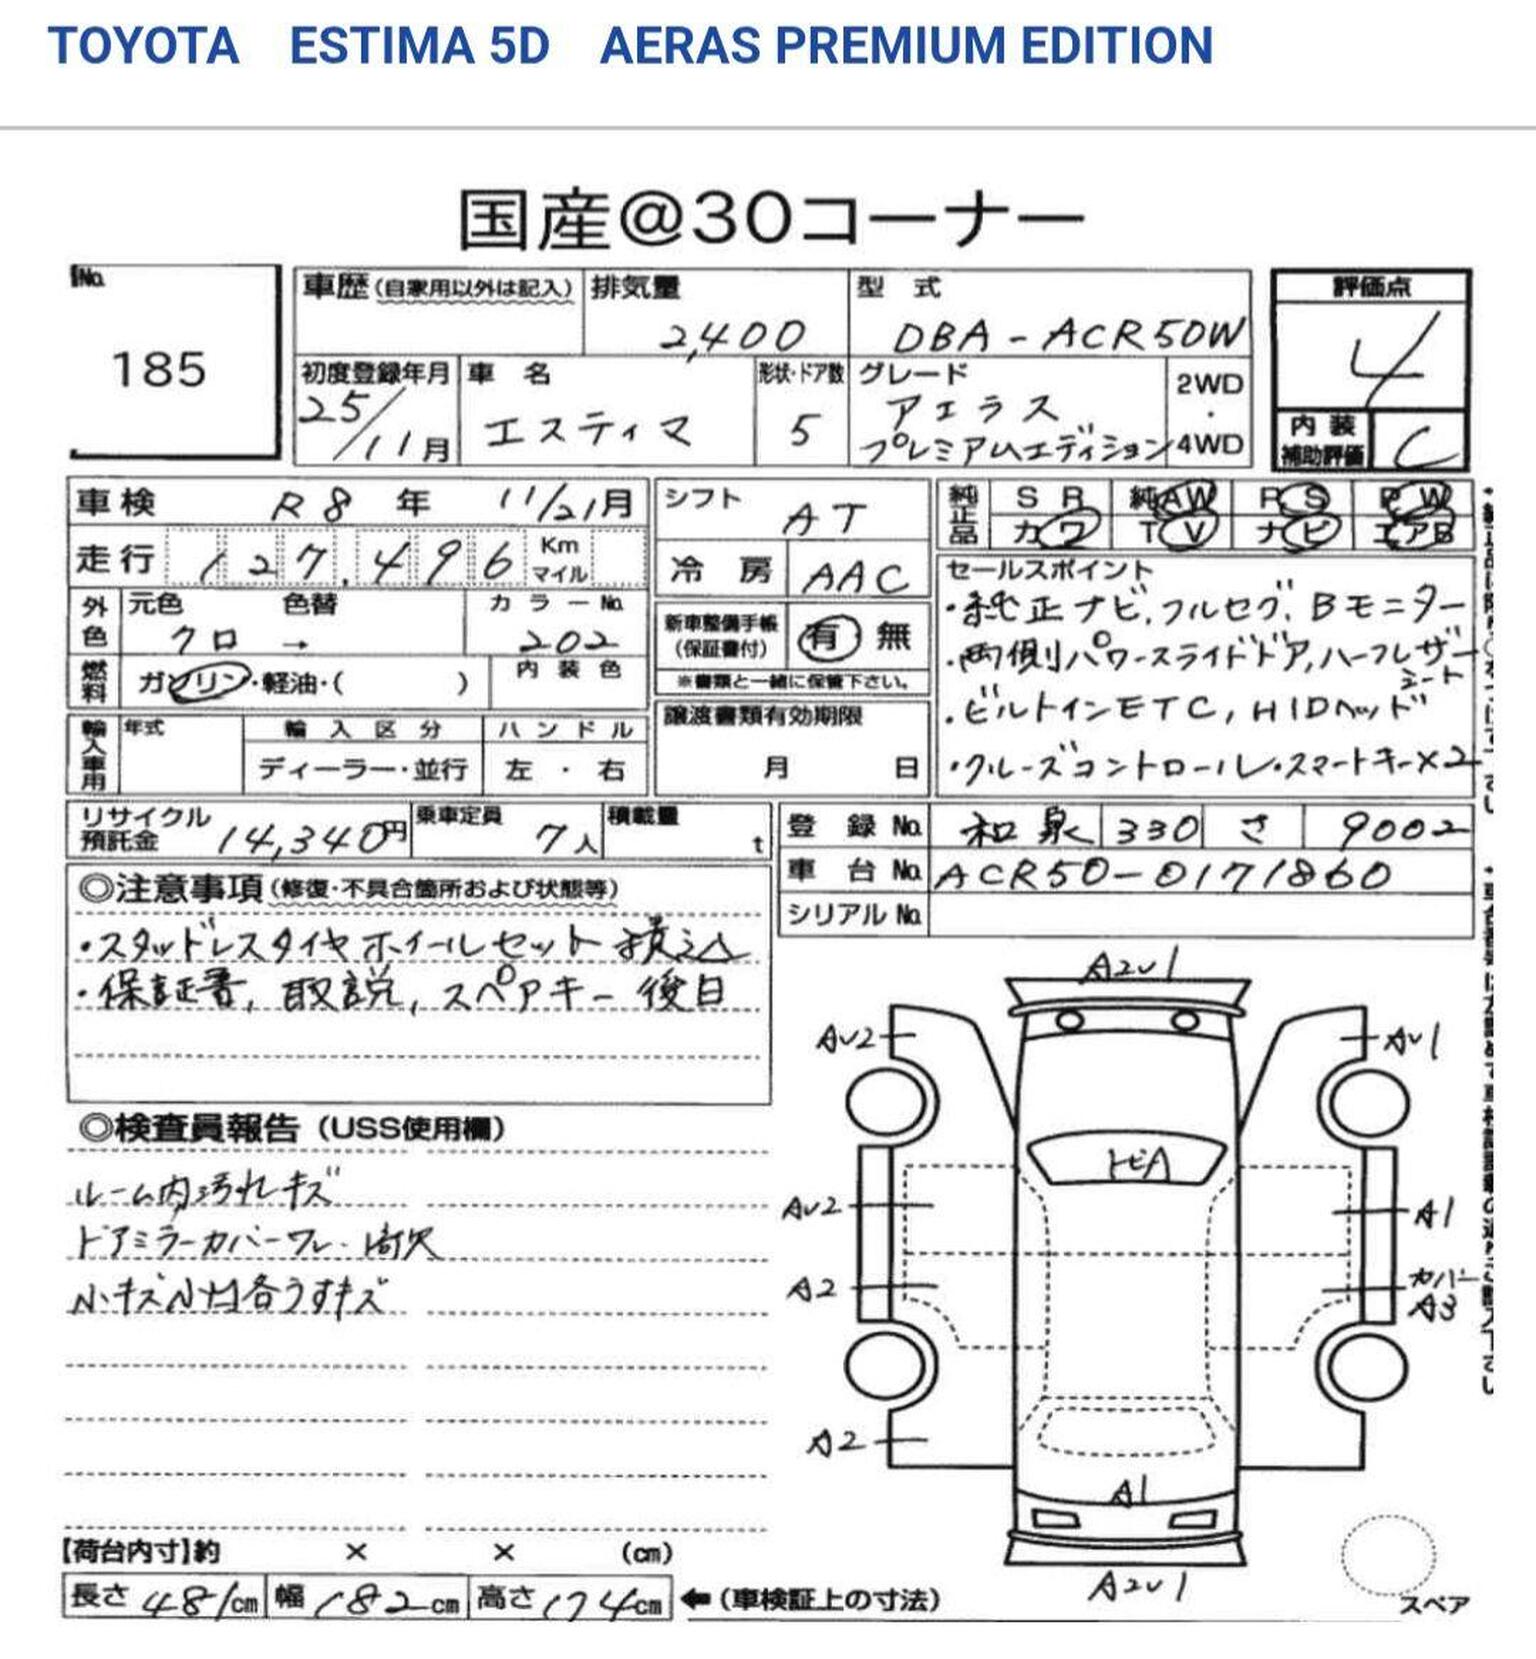 TOYOTA ESTIMA 5D AERAS PREMIUM EDITION
国産@30コーナー
No.
185
車歴(自家用以外は記入)
排気量
2,400
型 式
DBA-ACR50W
評価点
4
初度登録年月
25/11月
車 名
エスティマ
形状・ドア数
5
グレード
アエラス
プレミアムエディション
2WD
・
4WD
内装
補助評価
C
車検 R8年 11/21月
シフト
AT
純正品
SR 純AW PS PW
カワ TV ナビ エアB
走行 127,496 Km
マイル
冷房 AAC
セールスポイント
・純正ナビ,フルセグ,Bモニター
・両側パワースライドドア,ハーフレザー
シート
・ビルトインETC,HIDヘッド
・クルーズコントロール・スマートキー×2
外色 元色 色替 カラーNo.
クロ → 202
新車整備手帳
(保証書付)
有 無
※書類と一緒に保管下さい。
燃料 ガソリン・軽油・( ) 内装色
譲渡書類有効期限
月 日
輸入車用 年式 輸入区分 ハンドル
ディーラー・並行 左・右
リサイクル
預託金 14,340円
乗車定員 7人
積載量 t
登録No. 和泉 330 さ 9002
車台No. ACR50-0171860
シリアルNo.
◎注意事項(修復・不具合箇所および状態等)
・スタッドレスタイヤホイールセット積込
・保証書,取説,スペアキー後日
◎検査員報告(USS使用欄)
ルーム内汚れキズ
ドアミラーカバーワレ・
小キズ小凹各うすキズ
A2υ1
Aυ2
Aυ1
トビA
Aυ2
A1
A2
カバー
A3
A2
A1
A2υ1
スペア
【荷台内寸】約 × × (cm)
長さ 481cm 幅 182cm 高さ 174cm ←(車検証上の寸法)